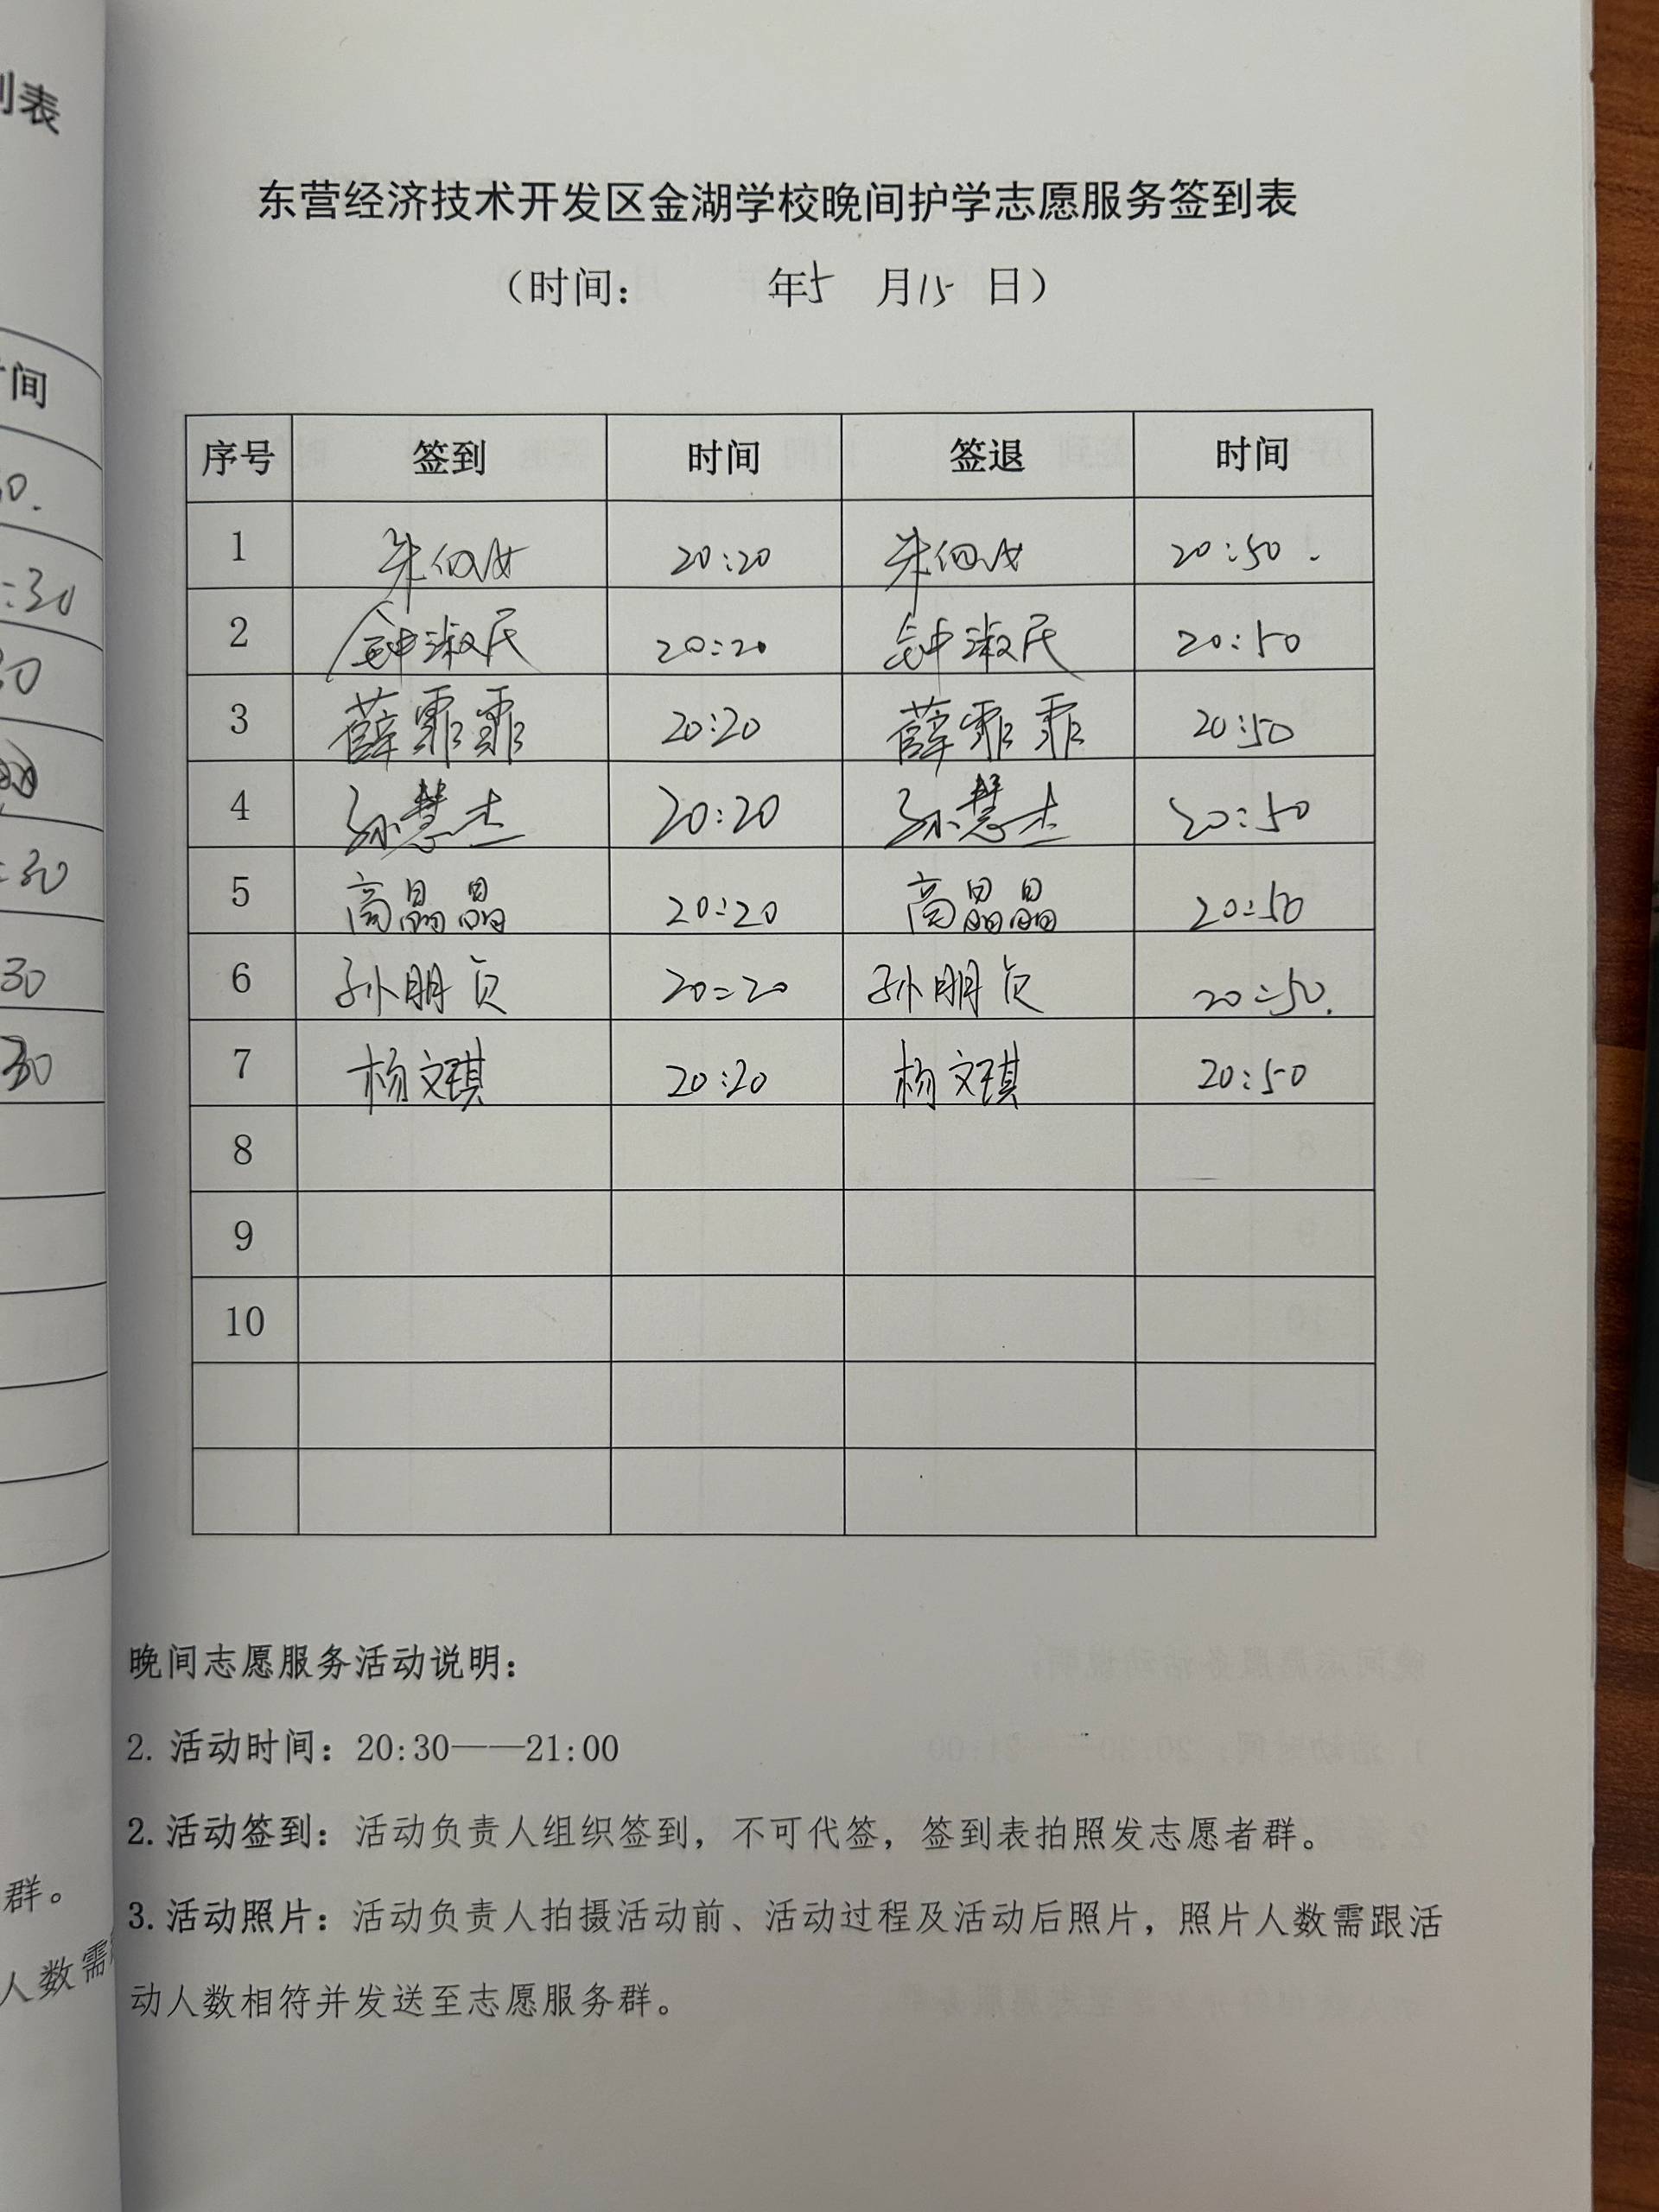 东营经济技术开发区金湖学校晚间护学志愿服务签到表
（时间： 年5 月15 日）
序号 签到 时间 签退 时间
1 朱 20:20 朱 20:50.
2 钟淑民 20:20 钟淑民 20:50
3 薛霏霏 20:20 薛霏霏 20:50
4 孙慧杰 20:20 孙慧杰 20:50
5 高晶晶 20:20 高晶晶 20:50
6 孙朋贞 20:20 孙朋贞 20:50.
7 杨文琪 20:20 杨文琪 20:50
8
9
10
晚间志愿服务活动说明：
2. 活动时间：20:30——21:00
2. 活动签到：活动负责人组织签到，不可代签，签到表拍照发志愿者群。
3. 活动照片：活动负责人拍摄活动前、活动过程及活动后照片，照片人数需跟活
动人数相符并发送至志愿服务群。